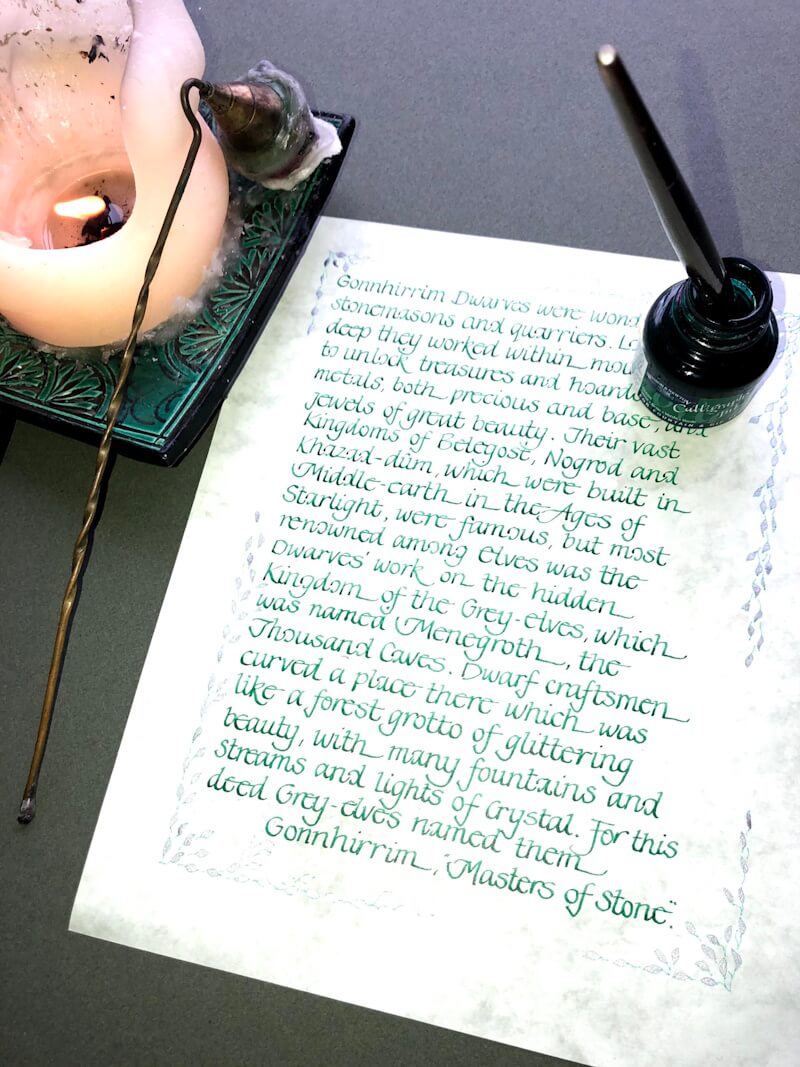 Gonnhirrim Dwarves were
stonemasons and quarriers.
deep they worked within
to unlock treasures and
metals, both precious and base, and
jewels of great beauty. Their vast
Kingdoms of Belegost, Nogrod and
Khazad-dûm, which were built in
Middle-earth in the Ages of
Starlight, were famous, but most
renowned among Elves was the
Dwarves' work on the hidden
Kingdom of the Grey-elves, which
was named Menegroth, the
Thousand Caves. Dwarf craftsmen
curved a place there which was
like a forest grotto of glittering
beauty, with many fountains and
streams and lights of crystal. For this
deed Grey-elves named them
Gonnhirrim, "Masters of Stone".
Calligraphy